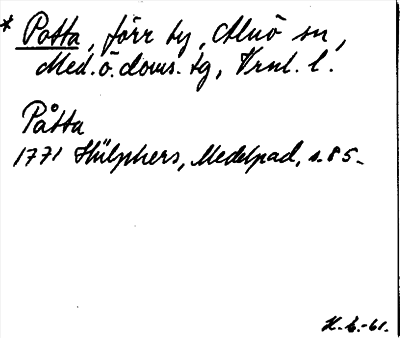 * Potta, förr by, Alnö sn,
Med. ö. doms. tg, Vrnl. l.
Påtta
1771 Hülphers, Medelpad, s. 85.
H. L. -61.